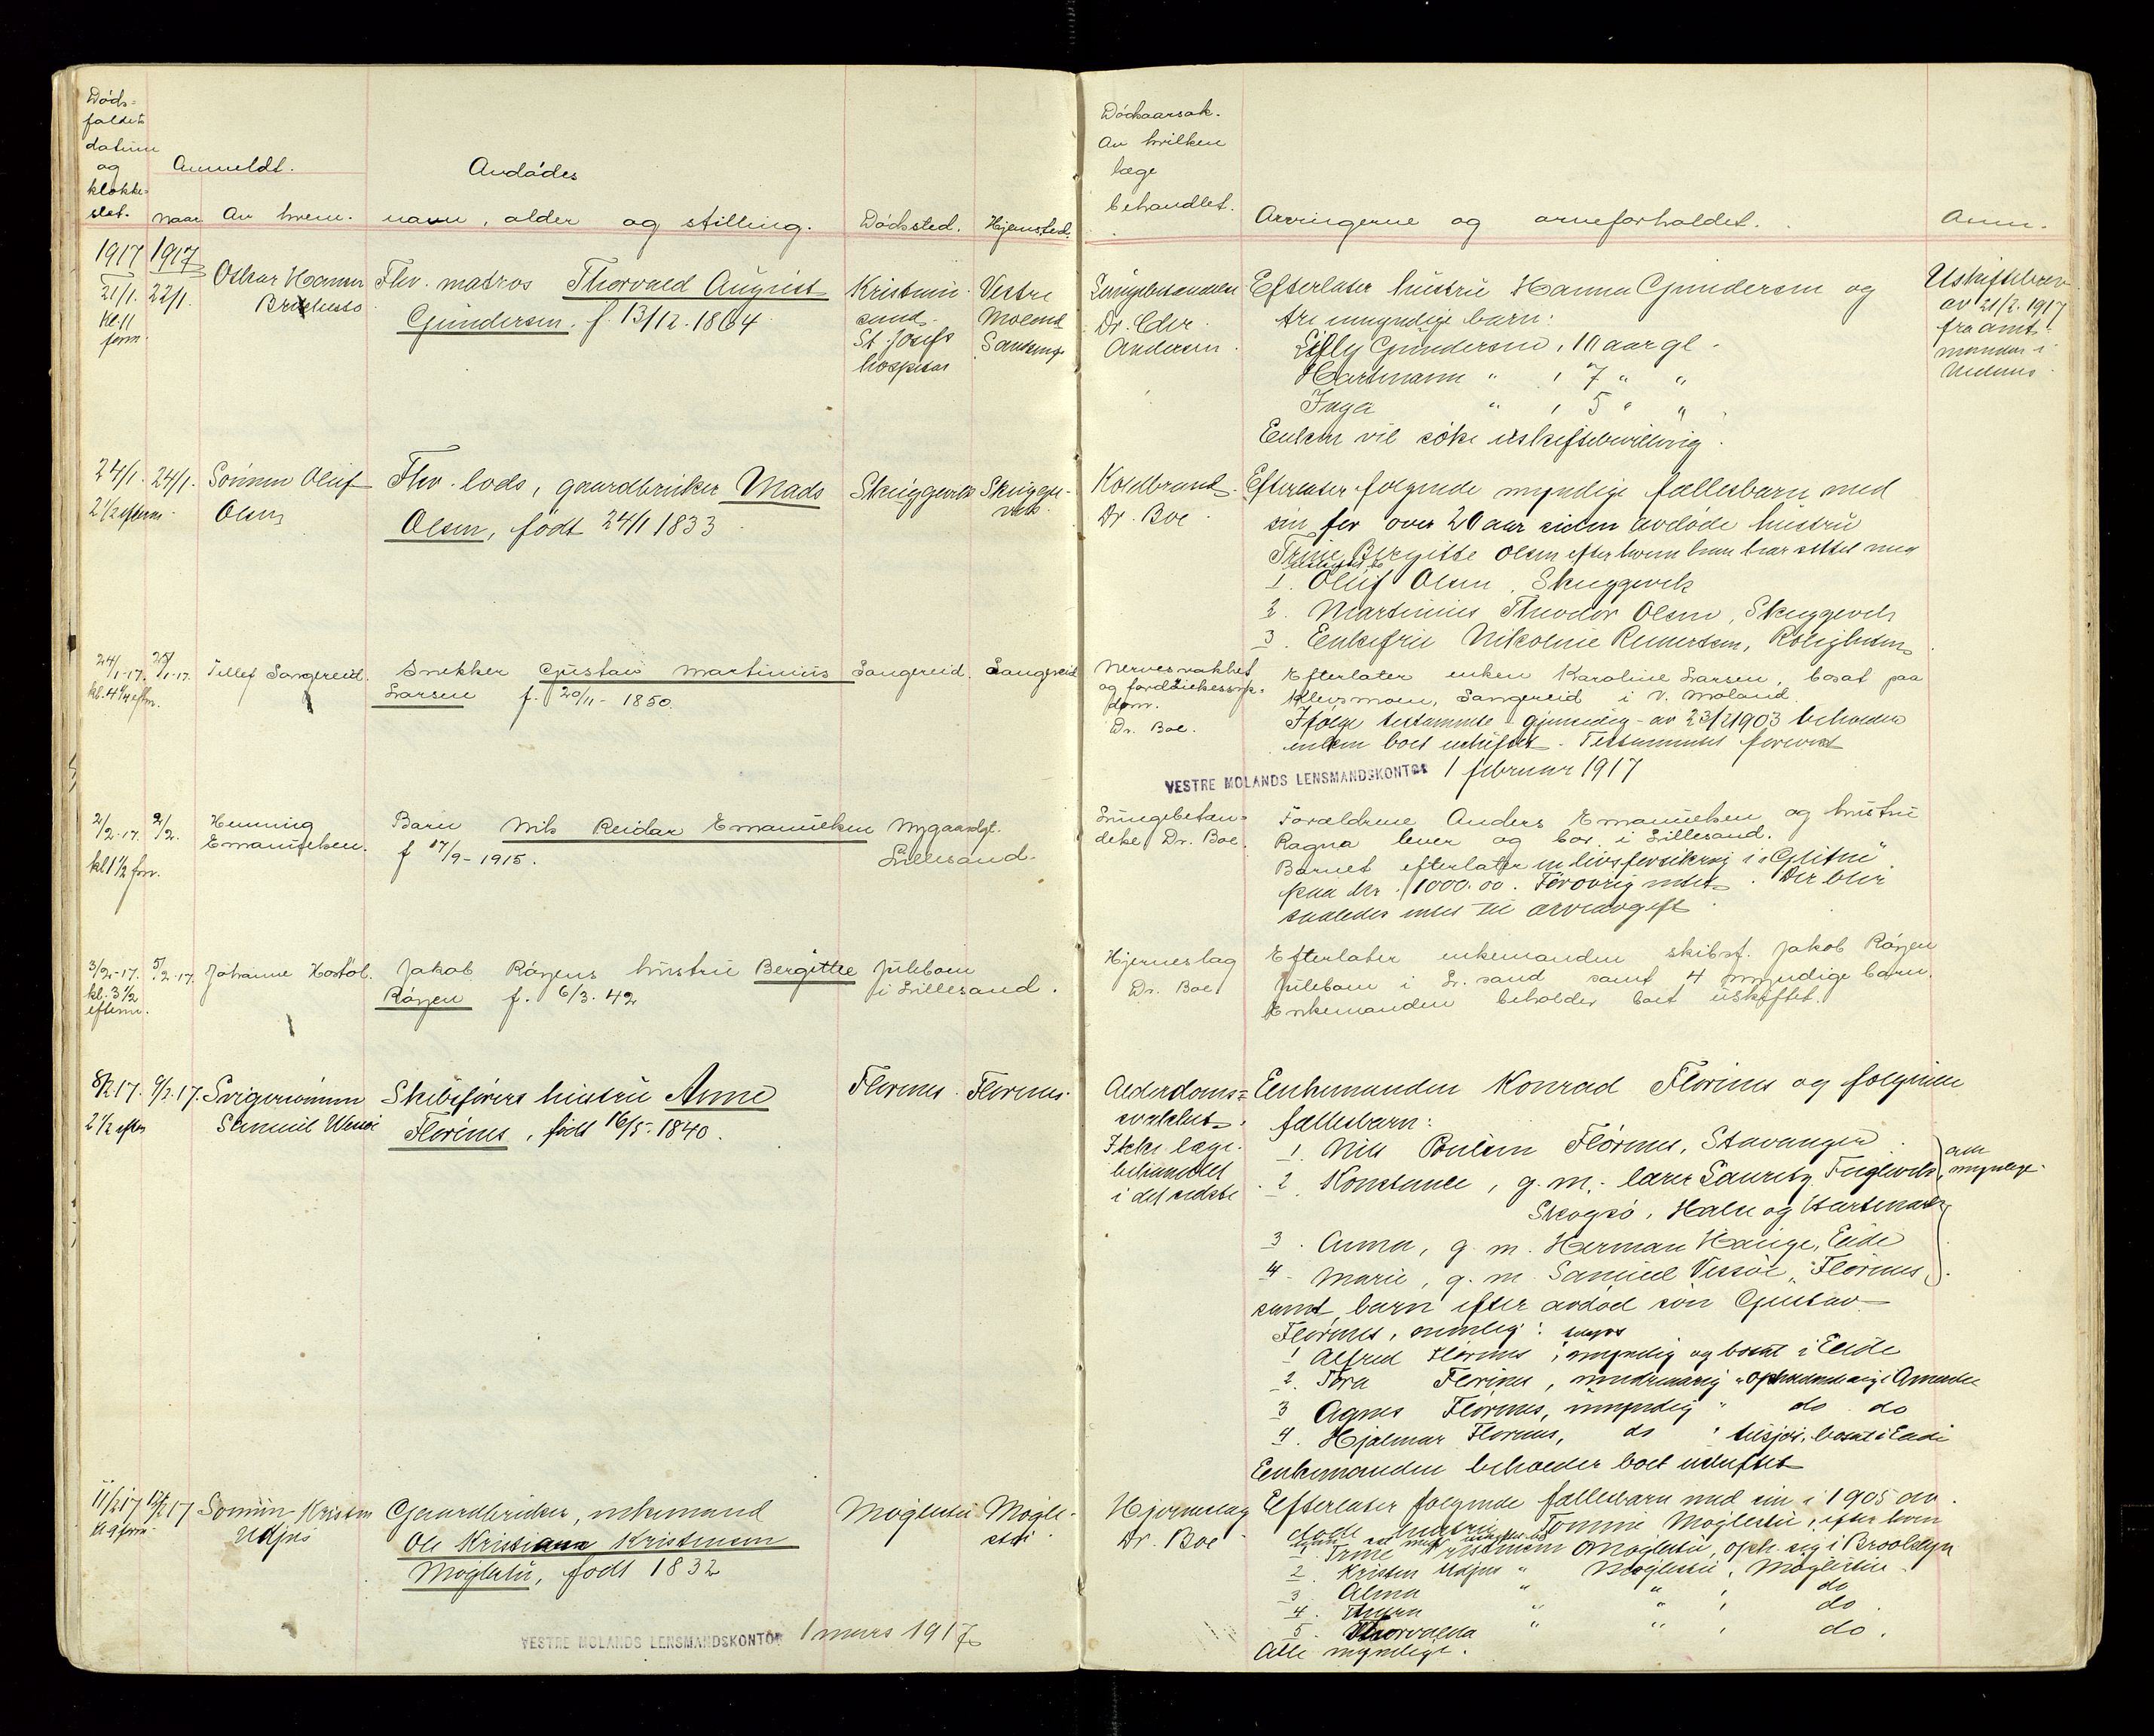 Døds-
faldets
datum
og
klokke-
slet.
Anmeldt.
naar
Av hvem.
Avdødes
navn, alder og stilling.
Dødssted.
Hjemsted.
Dødsaarsak.
Av hvilken
læge
behandlet.
Arvingerne og arveforholdet.
Anm.
1917
21/1.
Kl. 11
form.
1917
22/1.
Oskar Hammer
Fhv. matros Thorvald August
Gundersen. f. 13/12. 1864
Kristian-
sund.
St. Josefs
hospital
Vestre
Moland
Lungebetændelse
Dr.
Andersen.
Efterlater hustru Hanna Gundersen og
tre umyndige barn:
Lilly Gundersen, 10 aar gl.
Hartmann " , 7 " "
Inga " , 5 " "
Enken vil søke uskiftebevilling.
Uskiftebrev
av 21/2. 1917
fra amt-
manden i
Nedenes.
24/1.
2 1/2 efterm.
24/1.
Sønnen Oluf
Olsen
Fhv. lods, gaardbruker Mads
Olsen, født 24/1 1833
Skuggevik
Skugge-
vik.
Koldbrand.
Dr. Boe.
Efterlater følgende myndige fællesbarn med
sin for over 20 aar siden avdøde hustru
Trine Birgitte Olsen efter hvem han har sittet med
1. Oluf Olsen, Skuggevik
2. Martinius Theodor Olsen, Skuggevik
3. Enkefru Nikoline Reinertsen, Roligheten
24/1-17.
kl. 4 1/4 efm.
25/1-17.
Tellef Sangereid.
Snekker Gustav Martinius
Larsen f. 20/11-1850.
Sangereid.
Sangereid
Nervesvakhet
og fordøielsessyk-
dom.
Dr. Boe.
Efterlater enken Karoline Larsen, bosat paa
Klevsmoen, Sangereid i V. Moland.
Ifølge testamente - gjensidig - av 23/2 1903 beholder
enken boet uskiftet. Testamentet forevist
VESTRE MOLANDS LENSMANDSKONTOR 1 februar 1917
2/2-17.
kl 1 1/2 form.
2/2.
Henning
Emanuelsen.
Barn Nils Reidar Emanuelsen
f 17/9-1915.
Nygaardsgt.
Lillesand.
Lungebetæn-
delse Dr. Boe.
Forældrene Anders Emanuelsen og hustru
Ragna lever og bor i Lillesand.
Barnet efterlater en livsforsikring i "Glitne"
paa kr. 1000.00. Forøvrig intet. Der blir
saaledes intet til arveavgift.
3/2-17.
kl. 3 1/2
efterm.
5/2-17.
Johanne Hostol.
Jakob Røyens hustru Bergitte
Røyen f. 6/3. 42
Julebom
i Lillesand.
Hjerneslag
Dr. Boe
Efterlater enkemanden skibsf. Jakob Røyen
Julebom i L.sand samt 4 myndige barn.
Enkemanden beholder boet uskiftet.
8/2.17.
2 1/2 efter
9/2.17.
Svigersønnen
Samuel
Skibsførers hustru Anne
Florines, født 16/5. 1840.
Florines.
Florines.
Alderdoms-
svakhet.
Ikke læge-
behandlet
i det sidste
Enkemanden Konrad Florines og følgende
fællesbarn:
1. Nils Poulsen Florines, Stavanger
2. Konstance, g. m. lærer Lauritz Fuglevik,
Skogsø, Halse og Hartmark
3. Anna, g. m. Herman Hauge, Eide
4. Marie, g. m. Samuel Vessøe, Florines.
alle
myndige.
samt barn efter avdød søn Gustav
Florines, nemlig:
1 Alfred Florines, myndig og bosat i Eide
2. Tora Florines, mindreaarig, opholdende sig i Amerika
3 Agnes Florines, umyndig " do do
4. Hjalmar Florines, do " tilsjøs, bosat i Eide
Enkemanden beholder boet uskiftet
11/2 17
kl 9 form.
12/2 17
Sønnen Kristen
Udjus
Gaardbruker, enkemand
Ole Kristian Kristensen
Møglestu, født 1832
Møglestu
Møgle-
stu
Hjerneslag
Dr. Boe
Efterlater følgende fællesbarn med sin i 1905 av-
døde hustru Tomine Møglestu, efter hvem
1. Trine Møglestu, oph. sig i Brooklyn
2. Kristen Udjus " Møglestu, Møglestu.
3. Alma " " , do
4. Thora " " , do.
5. Thorvalda " " , do.
Alle myndige.
VESTRE MOLANDS LENSMANDSKONTOR 1 mars 1917